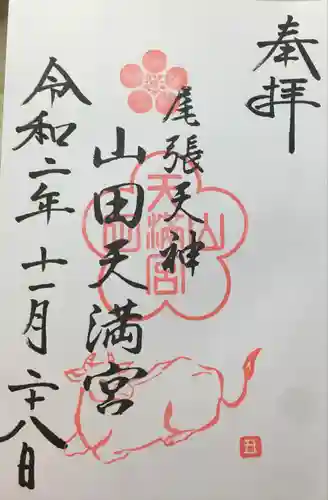 奉拝
尾張天神
山田天満宮
令和二年十一月二十八日
山田
天満宮
丑